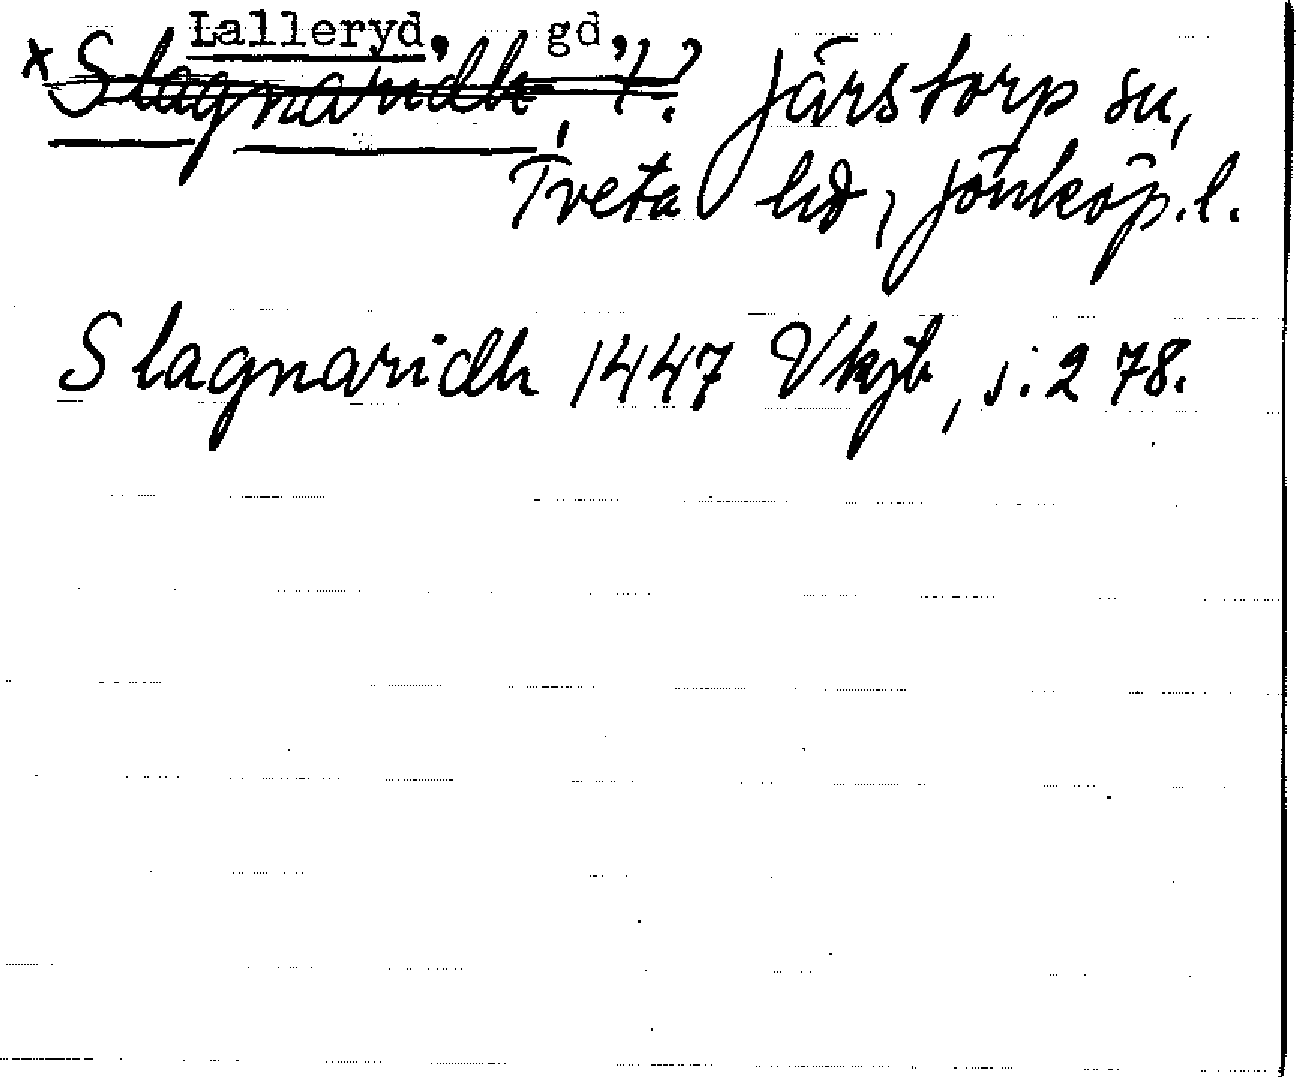 Lalleryd, gd,
x Slagnaridh, ? Järstorp sn,
Tveta hd, Jönköp.l.
Slagnaridh 1447 Vkjb, s. 278.